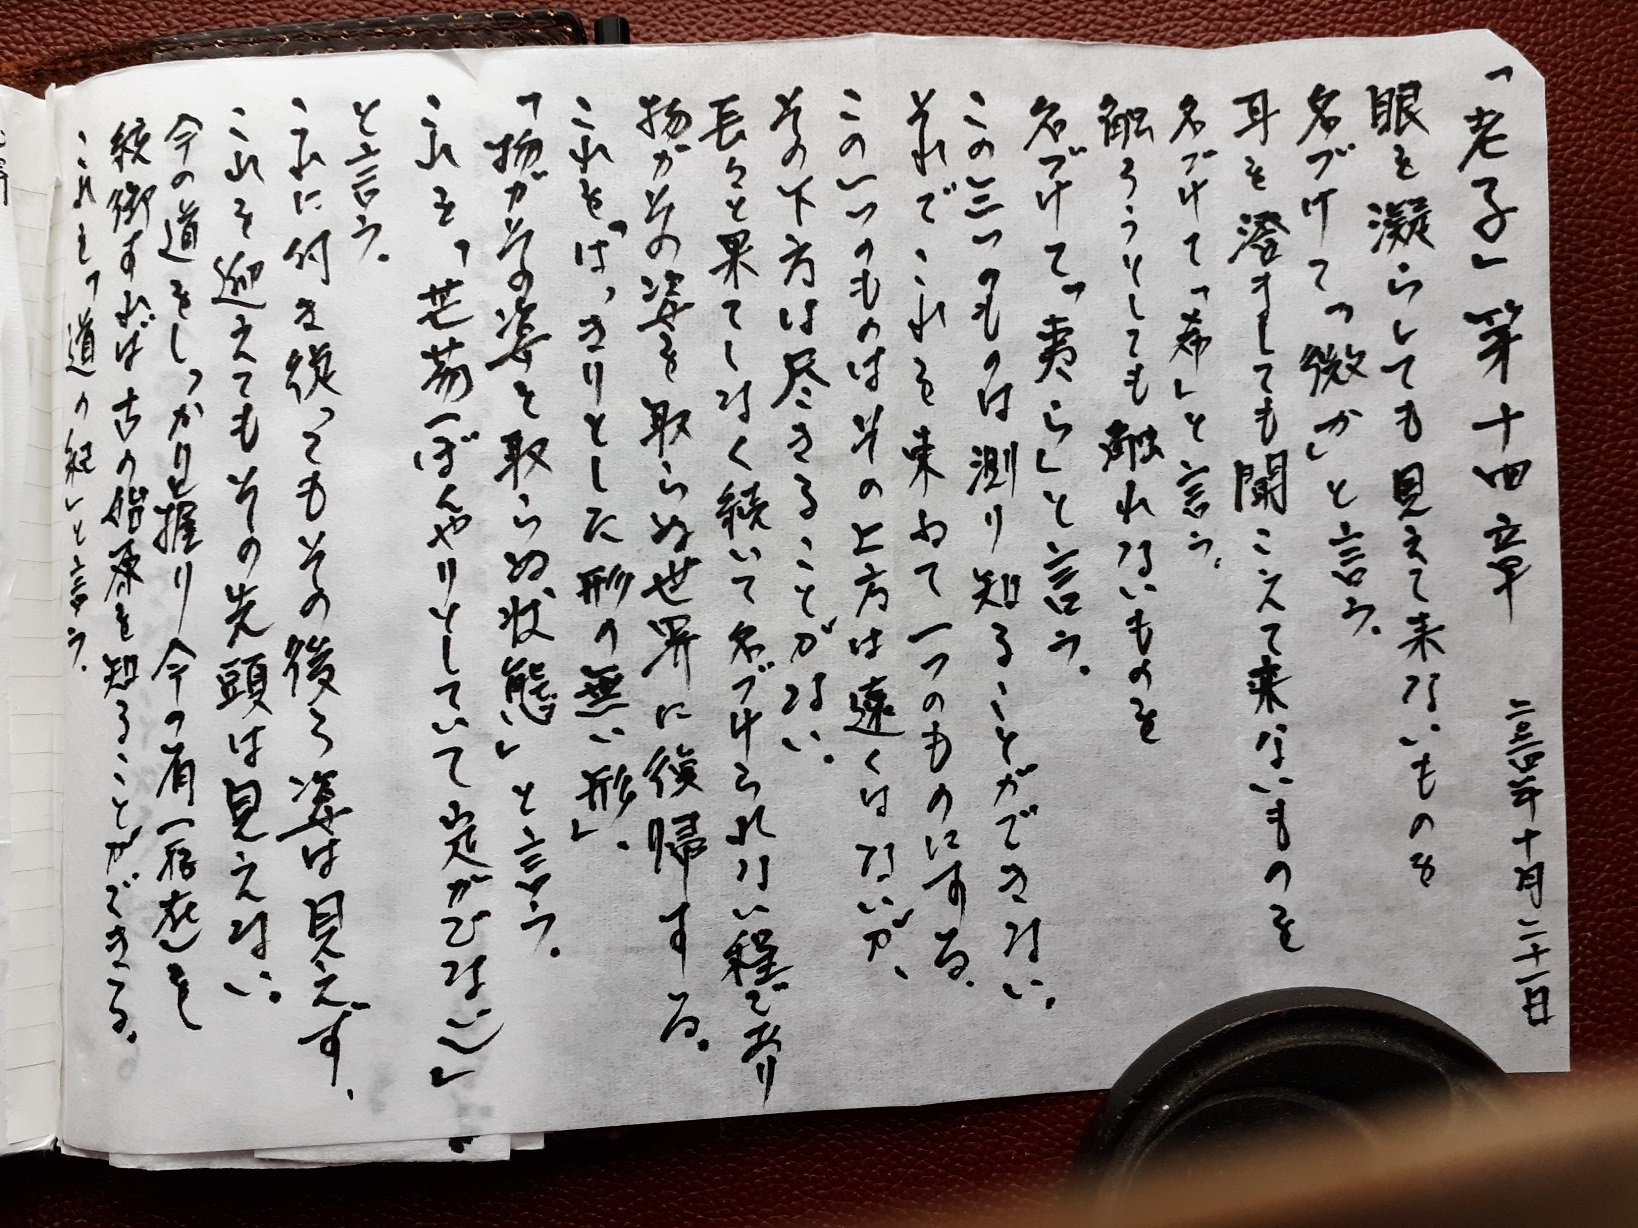 「老子」第十四章　二〇二四年十月二十一日
眼を凝らしても見えて来ないものを
名づけて「微か」と言う。
耳を澄ましても聞こえて来ないものを
名づけて「希」と言う。
触ろうとしても触れないものを
名づけて「夷ら」と言う。
この三つのものは測り知ることができない。
それでこれを束ねて一つのものにする。
この一つのものは其の上方は遠くはないが、
その下方は尽きることがない。
長々と果てしなく続いて名づけられない程であり
物がその姿を取らぬ世界に復帰する。
これを「はっきりとした形の無い形」、
「物がその姿を取らぬ状態」と言う。
これを「芒芴(ぼんやりとしていて定かでない)」
と言う。
これに付き従ってもその後ろ姿は見えず、
これを迎えてもその先頭は見えない。
今の道をしっかり握り今の有(存在)を
統御すれば古の始原を知ることができる。
これを「道の紀」と言う。